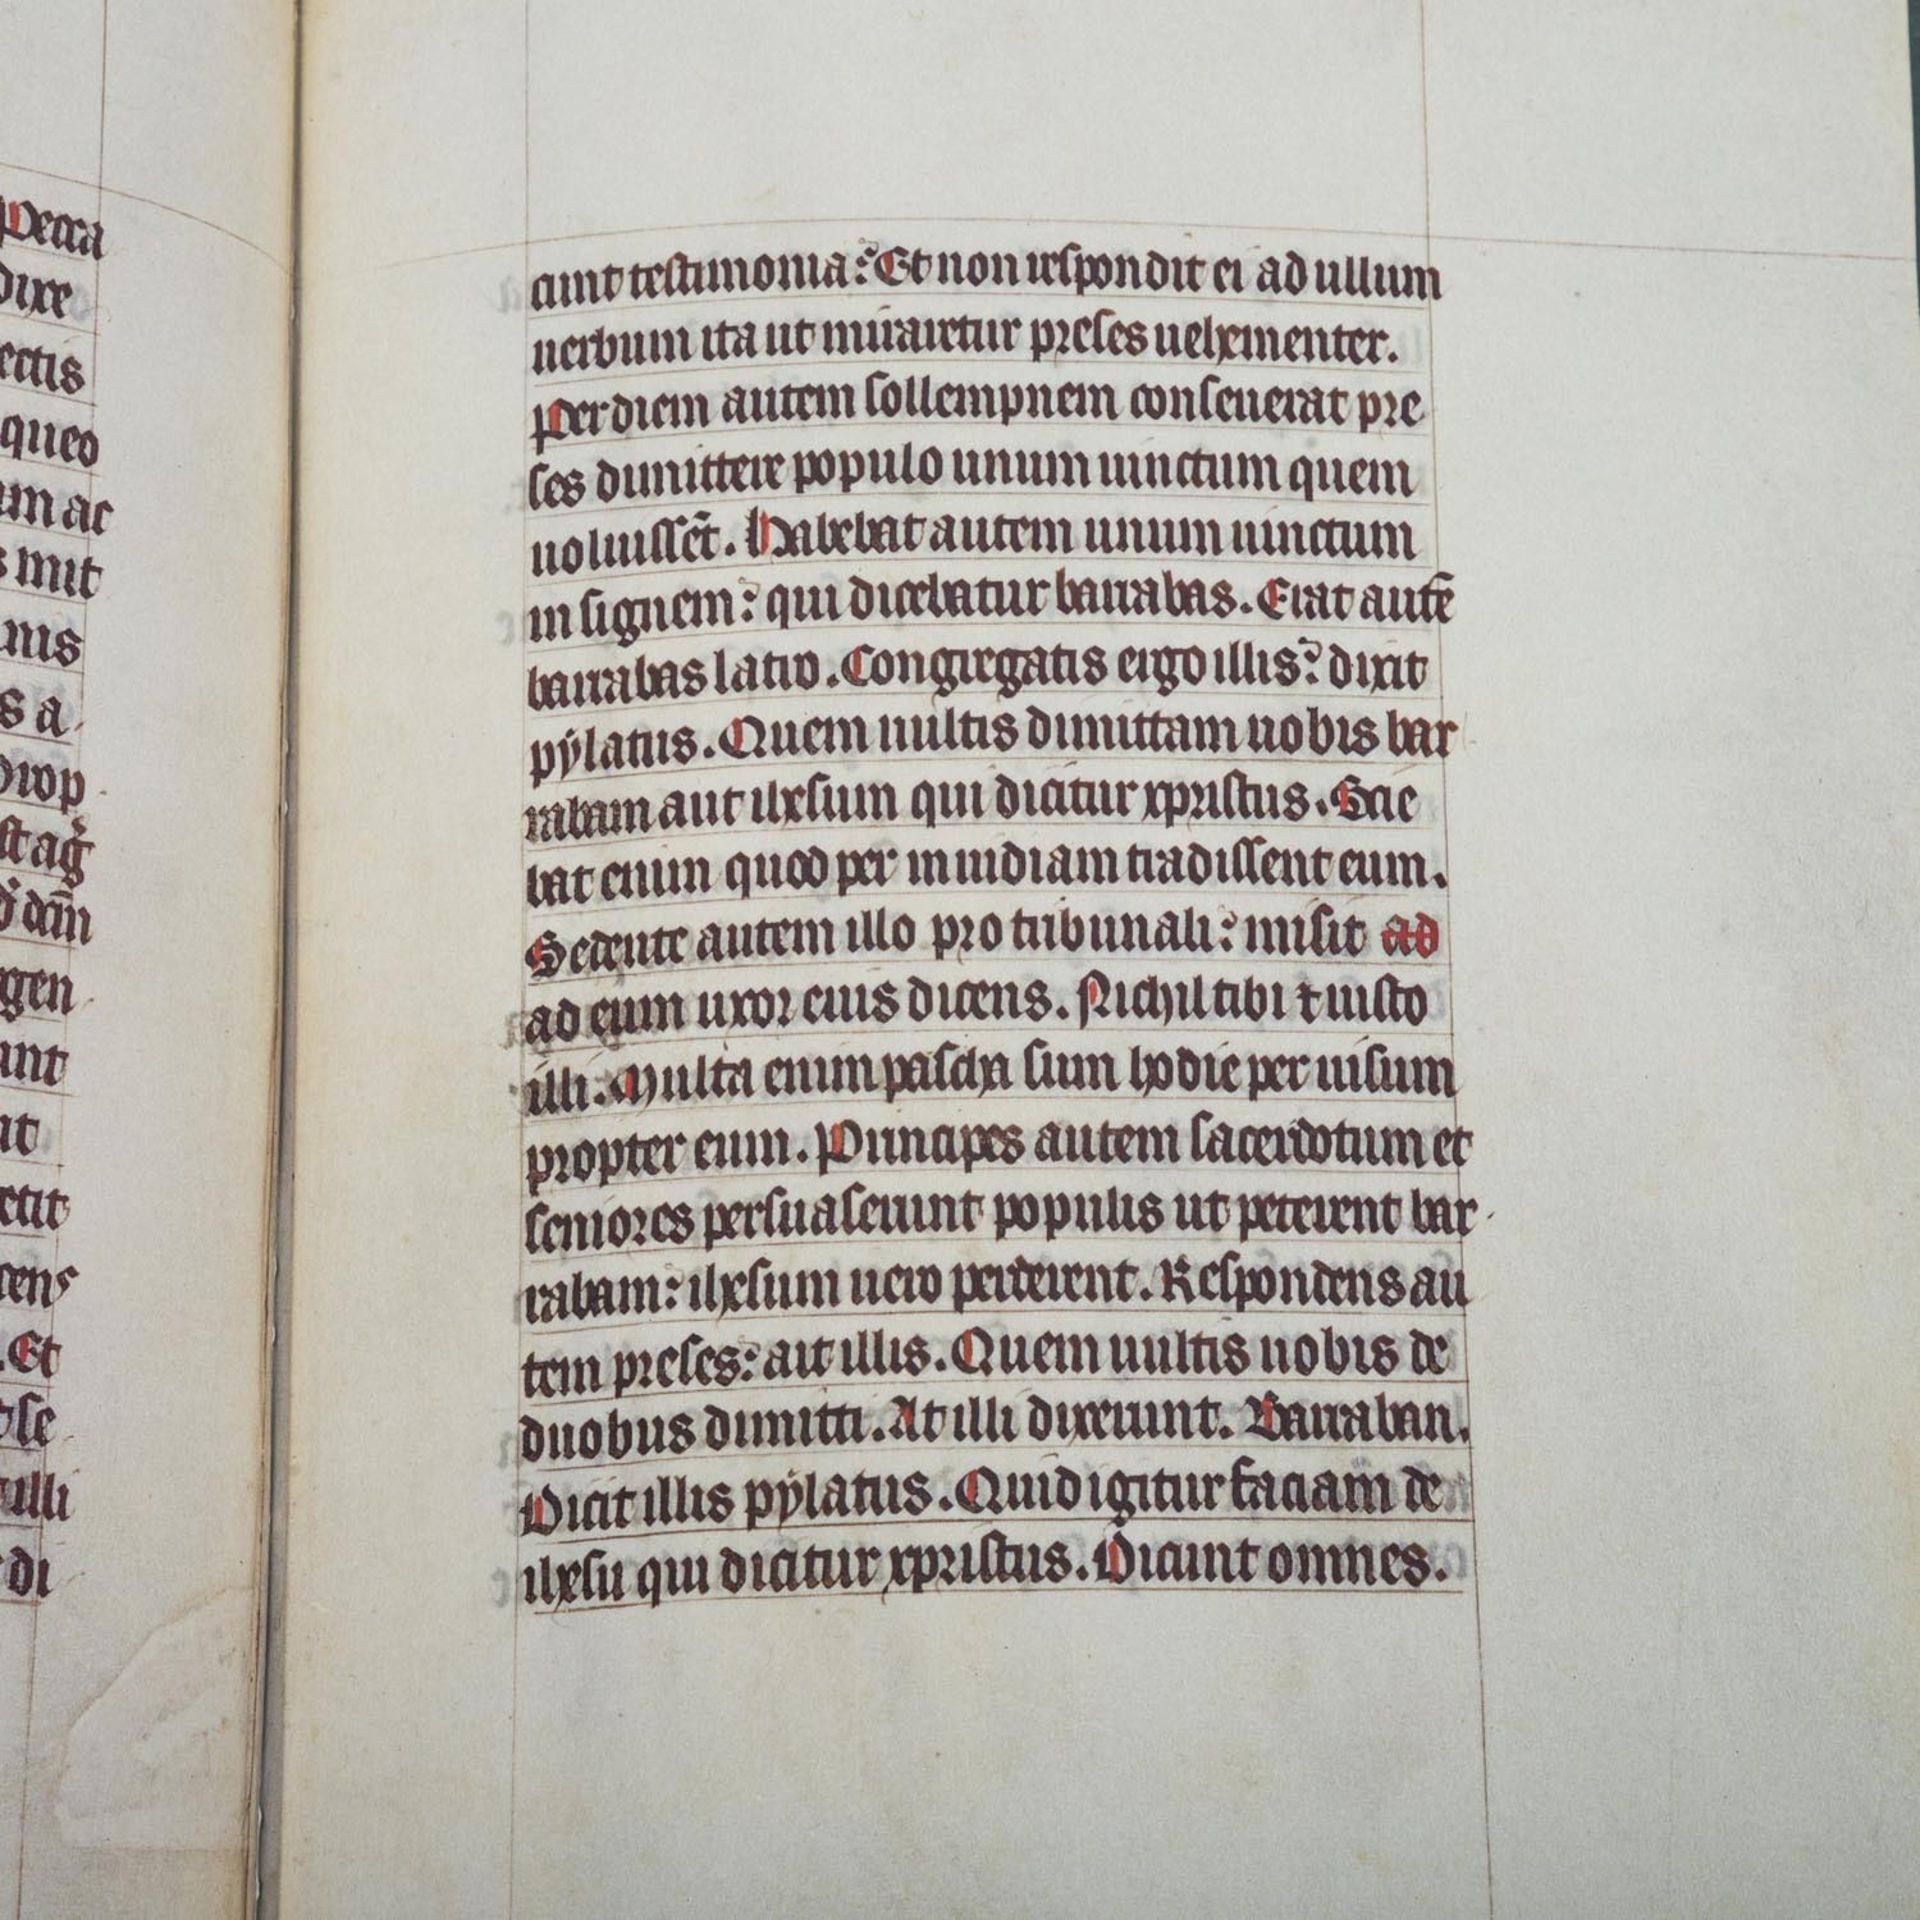 Pecca
dixe
ectis
queo
um ac
s mit
nis
s a
prop
st ag̃
dem̃
gen
unt
ut
etit
cens
. Et
se
illi
di
cunt testimonia : Et non respondit ei ad ullum
uerbum ita ut miraretur preses uehementer.
Per diem autem sollempnem consueuerat pre
ses dimittere populo unum uinctum quem
uoluissẽt. Habebat autem unum uinctum
insignem : qui dicebatur barrabas. Erat autẽ
barrabas latro. Congregatis ergo illis : dixit
pylatus. Quem uultis dimittam uobis bar
rabam aut ihesum qui dicitur xpristus. Scie
bat enim quod per inuidiam tradissent eum.
Sedente autem illo pro tribunali : misit ad
ad eum uxor eius dicens. Nichil tibi ⁊ iusto
illi. Multa enim pascha sum hodie per uisum
propter eum. Principes autem sacerdotum et
seniores persuaserunt populis ut peterent bar
rabam : ihesum uero perderent. Respondens au
tem preses : ait illis. Quem uultis uobis de
duobus dimitti. At illi dixerunt. Barraban.
Dicit illis pylatus. Quid igitur faciam de
ihesu qui dicitur xpristus. Dicunt omnes.